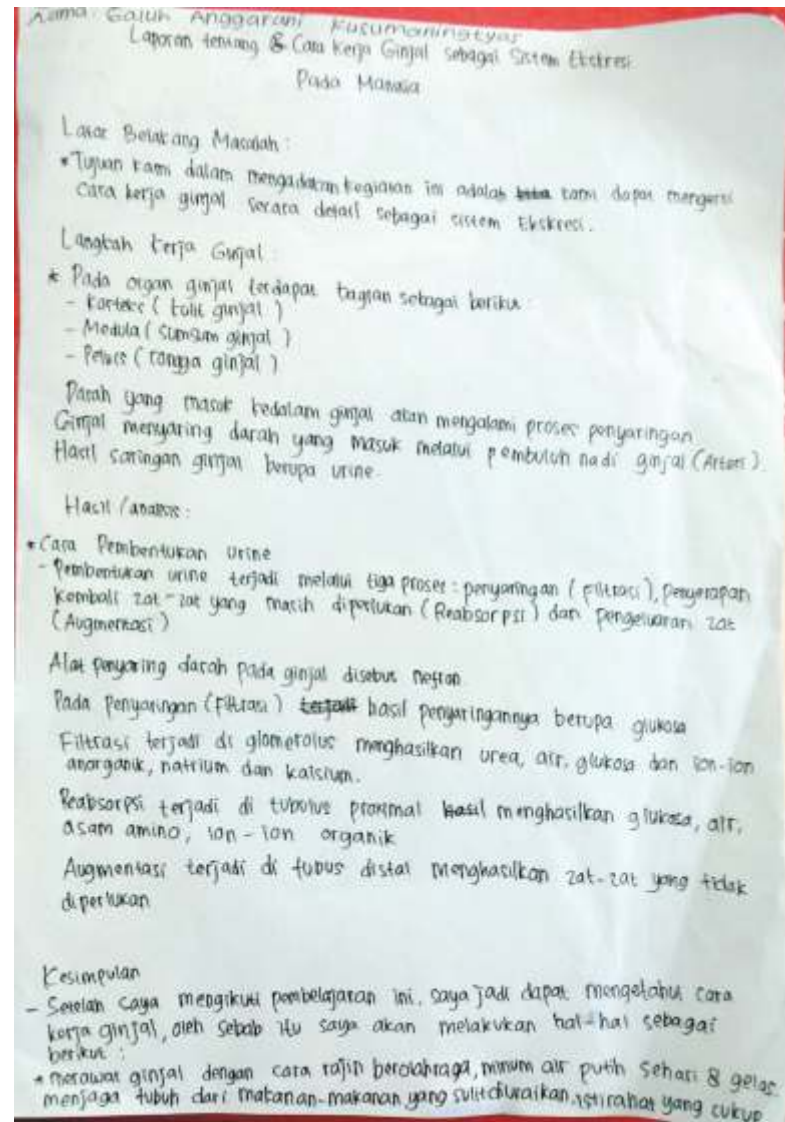 Nama : Galuh Anggaruni Kusumaningtyas
Laporan tentang & Cara Kerja Ginjal sebagai Sistem Ekskresi
Pada Manusia
Latar Belakang Masalah :
* Tujuan kami dalam mengadakan kegiatan ini adalah kami dapat mengerti
cara kerja ginjal secara detail sebagai sistem Ekskresi.
Langkah Kerja Ginjal :
* Pada organ ginjal terdapat bagian sebagai berikut :
- Korteks ( kulit ginjal )
- Medula ( sumsum ginjal )
- Pelvis ( rongga ginjal )
Darah yang masuk kedalam ginjal akan mengalami proses penyaringan
Ginjal menyaring darah yang masuk melalui pembuluh nadi ginjal (Arteri).
Hasil saringan ginjal berupa urine.
Hasil / analisis :
* Cara Pembentukan urine
- Pembentukan urine terjadi melalui tiga proses : penyaringan ( filtrasi ), penyerapan
kembali zat-zat yang masih diperlukan ( Reabsorpsi ) dan pengeluaran zat
( Augmentasi )
Alat penyaring darah pada ginjal disebut nefron
Pada penyaringan (Filtrasi) terjadi hasil penyaringannya berupa glukosa
Filtrasi terjadi di glomerolus menghasilkan urea, air, glukosa dan ion-ion
anorganik, natrium dan kalsium.
Reabsorpsi terjadi di tubulus proximal hasil menghasilkan glukosa, air,
asam amino, ion-ion organik
Augmentasi terjadi di tubus distal menghasilkan zat-zat yang tidak
diperlukan
Kesimpulan
- Setelah saya mengikuti pembelajaran ini, saya jadi dapat mengetahui cara
kerja ginjal, oleh sebab itu saya akan melakukan hal-hal sebagai
berikut :
* merawat ginjal dengan cara rajin berolahraga, minum air putih sehari 8 gelas,
menjaga tubuh dari makanan-makanan yang sulit diuraikan, istirahat yang cukup